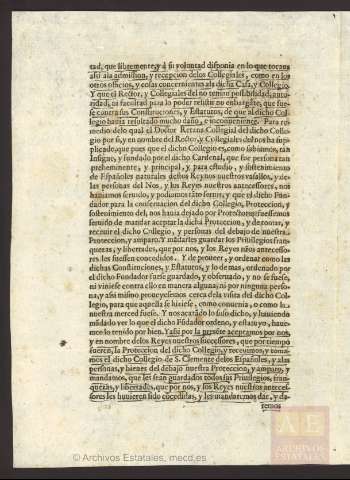 tad, que libremente, y à su voluntad disponia en lo que tocaua
assi ala admission, y recepcion delos Collegiales, como en los
otros oficios, y cosas concernientes ala dicha Casa, y Collegio.
Y que el Rector, y Collegiales del no tenian possibilidad, auto-
ridad, ni facultad para lo poder resistir no embargate, que fues-
se contra sus Constituciones, y Estatutos, de que al dicho Col-
legio hauia resultado mucho daño, e inconveniente. Para re-
medio delo qual el Doctor Retana Collegial del dicho Colle-
gio por si, y en nombre del Rector, y Collegiales del nos ha su-
plicado, que pues que el dicho Collegio es, como sabiamos, tan
Insigne, y fundado por el dicho Cardenal, que fue persona tan
preheminente, y principal, y para estudio, y sostenimiento
de Españoles naturales destos Reynos nuestros vasallos, y de-
las personas del Nos, y los Reyes nuestros antecessores, nos
hauiamos seruido, y podiamos seruir, y que el dicho Fun-
dador para la conseruacion del dicho Collegio, Proteccion, y
sostenimiento del, nos hauia dexado por Protectores fuessemos
seruido de mandar aceptar la dicha Proteccion, y de tomar, y
recebir el dicho Collegio, y personas del debaxo de nuestra
Proteccion, y amparo. Y mādarles guardar los Priuilegios fran-
quezas, y libertades, que por nos, y los Reyes nřos anteces-
sores les fuessen concedidos. Y de proueer, y ordenar como las
dichas Constituciones, y Estatutos, y lo demas, ordenado por
el dicho Fundador fuesse guardado, y obseruado, y no se fuesse,
ni viniesse contra ello en manera alguna, ni por ninguna perso-
na, y assi mismo proueyessemos cerca dela visita del dicho Col-
legio, para que aquella se hiziesse, como conuenia, o como la
nuestra merced fuesse. Y nos acatādo lo suso dicho, y hauiendo
mādado ver lo que el dicho Fūdador ordeno, y estatuyo, hauue-
mos lo tenido por bien. Y assi por la presente acceptamos por nos,
y en nombre delos Reyes nuestros successores, que por tiempo
fueren, la Proteccion del dicho Collegio, y recebimos, y toma-
mos el dicho Collegio de S. Clemente delos Españoles, y alas
personas, y bienes del debaxo nuestra Proteccion, y amparo, y
mandamos, que les sean guardados todos sus Priuilegios, fran-
quezas, y libertades, que por nos, y los Reyes nuestros anteces-
sores les huuieren sido cōcedidas, y les mandaremos dar, y da-
remos
AE
ARCHIVOS
ESTATALES
© Archivos Estatales, mecd.es